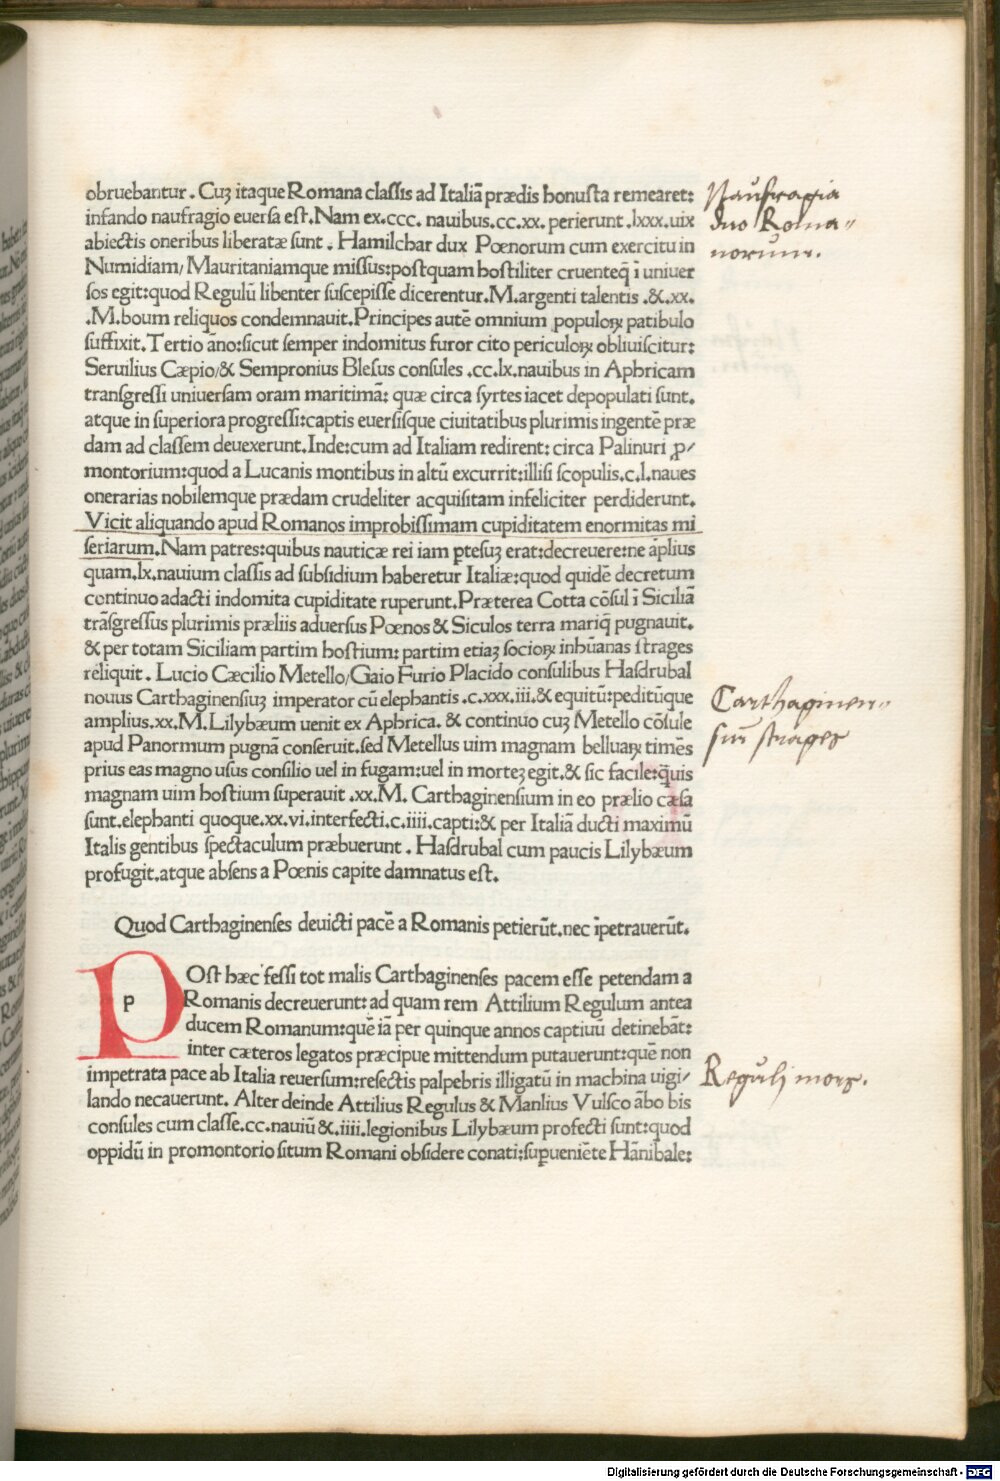 obruebantur. Cuȝ itaque Romana classis ad Italiā prædis honusta remearet:
infando naufragio euersa est. Nam ex.ccc. nauibus.cc.xx. perierunt .lxxx.uix
abiectis oneribus liberatæ sunt. Hamilchar dux Pœnorum cum exercitu in
Numidiam/ Mauritaniamque missus:postquam hostiliter cruenteq̃ ī uniuer
sos egit:quod Regulū libenter suscepisse dicerentur.M.argenti talentis .&.xx.
.M.boum reliquos condemnauit.Principes autē omnium populoꝝ patibulo
suffixit. Tertio āno:sicut semper indomitus furor cito periculoꝝ obliuiscitur:
Seruilius Cæpio/& Sempronius Blesus consules .cc.lx.nauibus in Aphricam
transgressi uniuersam oram maritimā: quæ circa syrtes iacet depopulati sunt.
atque in superiora progressi:captis euersisque ciuitatibus plurimis ingentē præ
dam ad classem deuexerunt.Inde:cum ad Italiam redirent: circa Palinuri ꝓ/
montorium:quod a Lucanis montibus in altū excurrit:illisi scopulis.c.l.naues
onerarias nobilemque prædam crudeliter acquisitam infeliciter perdiderunt.
Vicit aliquando apud Romanos improbissimam cupiditatem enormitas mi
seriarum.Nam patres:quibus nauticæ rei iam ꝑtesuȝ erat:decreuere:ne āplius
quam.lx.nauium classis ad subsidium haberetur Italiæ:quod quidē decretum
continuo adacti indomita cupiditate ruperunt.Præterea Cotta cōsul ī Siciliā
trāsgressus plurimis præliis aduersus Pœnos & Siculos terra mariq̃ pugnauit.
& per totam Siciliam partim hostium: partim etiaȝ socioꝝ inhūanas strages
reliquit. Lucio Cæcilio Metello/Gaio Furio Placido consulibus Hasdrubal
nouus Carthaginensiuȝ imperator cū elephantis .c.xxx.iii.& equitū:peditūque
amplius.xx.M.Lilybæum uenit ex Aphrica. & continuo cuȝ Metello cōsule
apud Panormum pugnā conseruit.sed Metellus uim magnam belluaꝝ timēs
prius eas magno usus consilio uel in fugam:uel in morteȝ egit.& sic facile:q̃uis
magnam uim hostium superauit .xx.M. Carthaginensium in eo prælio cæsa
sunt.elephanti quoque.xx.vi.interfecti.c.iiii.capti:& per Italiā ducti maximū
Italis gentibus spectaculum præbuerunt. Hasdrubal cum paucis Lilybæum
profugit.atque absens a Pœnis capite damnatus est.
Quod Carthaginenses deuicti pacē a Romanis petierūt.nec īpetrauerūt.
P p Ost hæc fessi tot malis Carthaginenses pacem esse petendam a
Romanis decreuerunt: ad quam rem Attilium Regulum antea
ducem Romanum:quē iā per quinque annos captiuū detinebāt:
inter cæteros legatos præcipue mittendum putauerunt:quē non
impetrata pace ab Italia reuersum:resectis palpebris illigatū in machina uigi/
lando necauerunt. Alter deinde Attilius Regulus & Manlius Vulsco ābo bis
consules cum classe.cc.nauiū &.iiii.legionibus Lilybæum profecti sunt:quod
oppidū in promontorio situm Romani obsidere conati:supueniēte Hānibale:
Naufragia
duo Roma-
norum.
Carthaginen-
siū strages
Reguli mors.
Digitalisierung gefördert durch die Deutsche Forschungsgemeinschaft - DFG